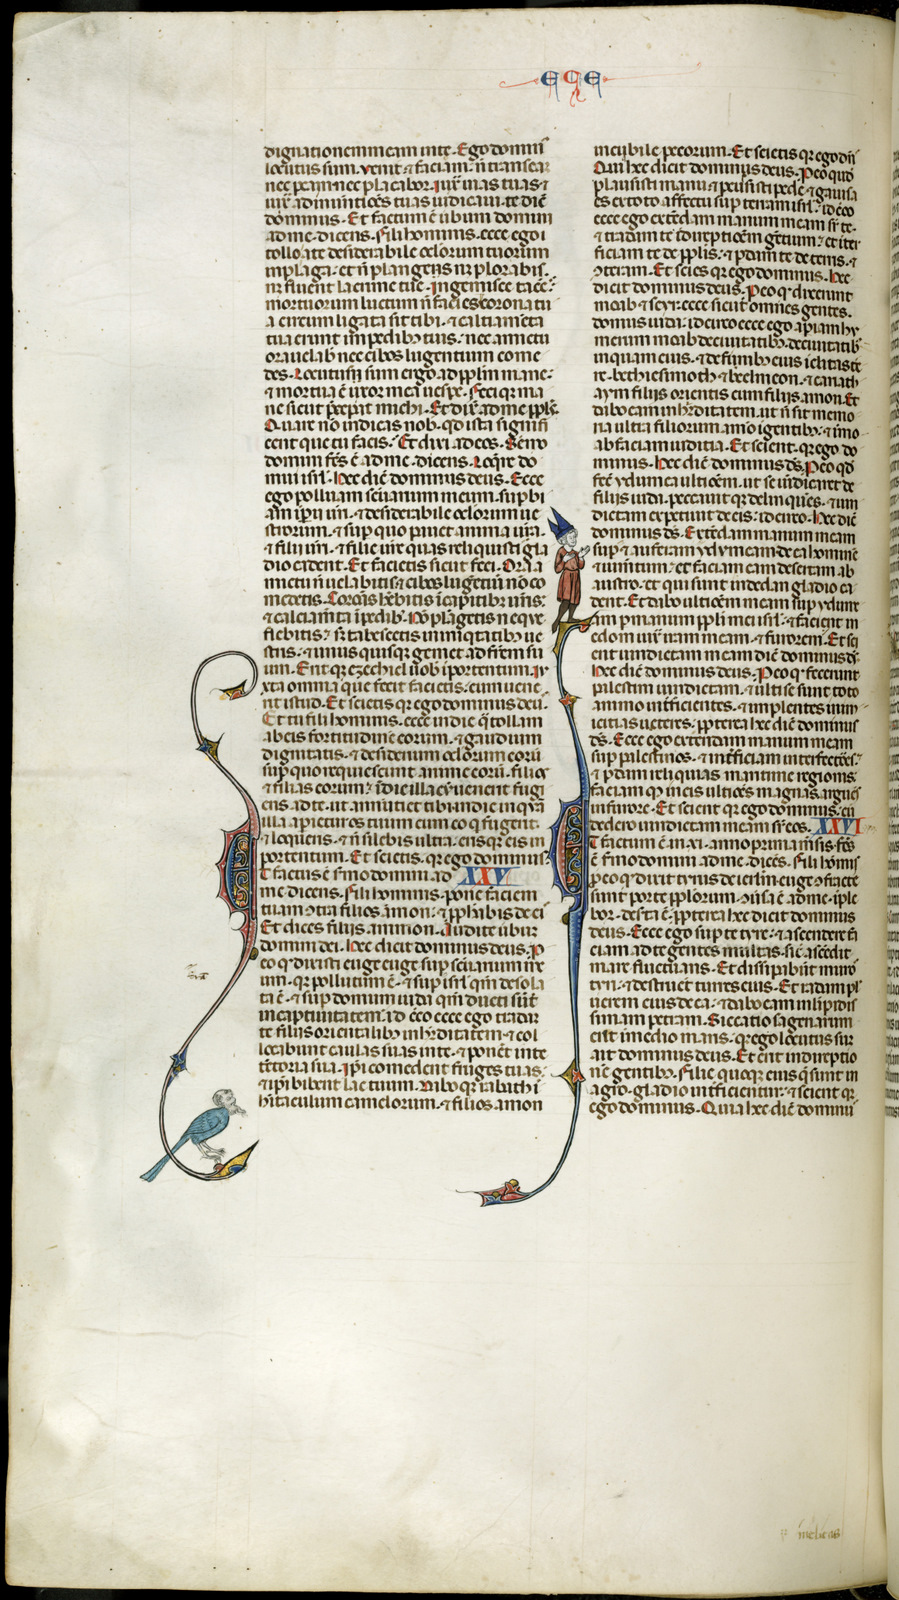 ECE
dignationem meam in te. Ego domin
locutus sum. Venit & faciam. n transeam
nec pcam nec placabor. Iux uias tuas &
iux adinuentices tuas iudicaui te. dic
dominus. Et factum e uerbum domini
ad me dicens. Fili hominis. ecce ego
tollo a te desiderabile oculorum tuorum
in plaga. et n planges nec plorabis.
neque fluent lacrime tue. Ingemisce tacens
mortuorum luctum n facies. corona tu
a circumligata sit tibi. & calciamenta
tua erunt in pedibus tuis. nec amictu
ora uelabis nec cibos lugentium come
des. Locutus sum ergo ad pplm mane.
& mortua e uxor mea uespe. Feci que ma
ne sicut precepit michi. Et dix ad me ppls.
Quare no indicas nob. qd ista signifi
cent que tu facis. Et dixi ad eos. Sermo
domini fcs e ad me. dicens. Loqre do
mui isrl. Hec dic dominus deus. Ecce
ego polluam scuarium meum. supbi
am imperii uri. & desiderabile oculorum ue
strorum. & sup quo pauet anima ura.
& filii uri. & filie ure quas reliquistis gla
dio cadent. Et facietis sicut feci. Ora a
mictu n uelabitis & cibos lugentiu no co
medetis. Coronas hebitis i capitibus uris.
& calciamta i pedib. No plangetis neque
flebitis. s tabescetis in iniqtatibus ue
stris. & unusquisque gemet ad frem su
um. Erit que ezechiel uob i portentum. Iu
xta omnia que fecit facietis. cum uene
rit istud. Et scietis que ego dominus deus.
Et tu fili hominis. ecce in die q tollam
ab eis fortitudine eorum. & gaudium
dignitatis. & desiderium oculorum eoru
sup quo requiescunt anime eoru. filios
& filias eorum. i die illa cu uenerit fugi
ens ad te. ut annuntiet tibi. in die inqua
illa apietur os tuum cum eo q fugerit.
& loqueris. & n silebis ultra. erisque eis in
portentum. Et scietis. que ego dominus.
Et factus e sermo domini ad XXV
me dicens. Fili hominis. pone faciem
tuam contra filios amon. & pphabis de ei
Et dices filiis ammon. Audite uerbum
domini dei. Hec dicit dominus deus. P
eo q dixisti euge euge sup scuarium me
um. que pollutum e. & sup isrl qm desola
ta e. & sup domum iuda qm ducti sunt
in captiuitatem. id circo ecce ego tradam
te filiis orientalibus in hereditatem. & col
locabunt caulas suas in te. & ponent in te
tentoria sua. Ipi comedent fruges tuas.
& ipi bibent lac tuum. Dabo que rabath i
hitaculum camelorum. & filios amon
in cubile pecorum. Et scietis que ego dn
Quia hec dicit dominus deus. P eo quod
plausisti manu & percussisti pede. & gauisa
es ex toto affectu sup terram isrl. id circo
ecce ego extendam manum meam sr te.
& tradam te in direptionem gentium. et inter
ficiam te de pplis. & pdam te de terris. &
conteram. Et scies que ego dominus. Hec
dicit dominus deus. P eo q dixerunt
moab & seyr. ecce sicut omnes gentes
domus iuda. id circo ecce ego apiam hu
merum moab de ciuitatibus. de ciuitatib
inquam eius. & de finibus eius iclitas ter
re. bethiesimoth & beelmeon. & cariath
aym filiis orientis cum filiis amon. Et
dabo eam in hereditatem. ut n sit memo
ria ultra filiorum amo i gentibus. & i mo
ab faciam iuditia. Et scient. que ego do
minus. Hec dic dominus ds. P eo qd
fec ydumea ultionem. ut se uindicaret de
filiis iuda. peccauit que delinquens. & uin
dictam expetiuit de eis. id circo. Hec dic
dominus ds. Extendam manum meam
sup & auferam ydumeam de ea hominem
& iumentum. et faciam eam desertam ab
austro. et qui sunt in dedan gladio ca
dent. Et dabo ultionem meam sup ydume
am p manum ppli mei isrl. & facient in
edom iux iram meam. & furorem. Et sci
ent uindictam meam dic dominus ds.
Hec dic dominus deus. P eo q fecerunt
palestini uindictam. & ulti se sunt toto
animo interficientes. & implentes inim
icitias ueteres. ppterea hec dic dominus
ds. Ecce ego extendam manum meam
sup palestinos. & interficiam interfectores.
& pdam reliquias maritime regionis.
Faciam que in eis ultiones magnas. arguens
in furore. Et scient que ego dominus. cu
dedero uindictam meam sr eos. XXVI
Et factum e in xi. anno prima mensis. fcs
e sermo domini ad me. dices. Fili hominis
p eo q dixit tyrus de ierlm. euge confracte
sunt porte pplorum. conuersa e ad me. iple
bor. deserta e. ppterea hec dicit dominus
deus. Ecce ego sup te tyre. & ascendere fa
ciam ad te gentes multas. sic ascedit
mare fluctuans. Et dissipabunt muros
tyri. & destruent turres eius. Et radam pl
uerem eius de ea. & dabo eam in limpidis
simam petram. Siccatio sagenarum
erit i medio maris. que ego locutus sum
ait dominus deus. Et erit in direptio
ne gentibus. Filie quoque eius q sunt in
agro. gladio interficientur. & scient que
ego dominus. Quia hec dic dominus